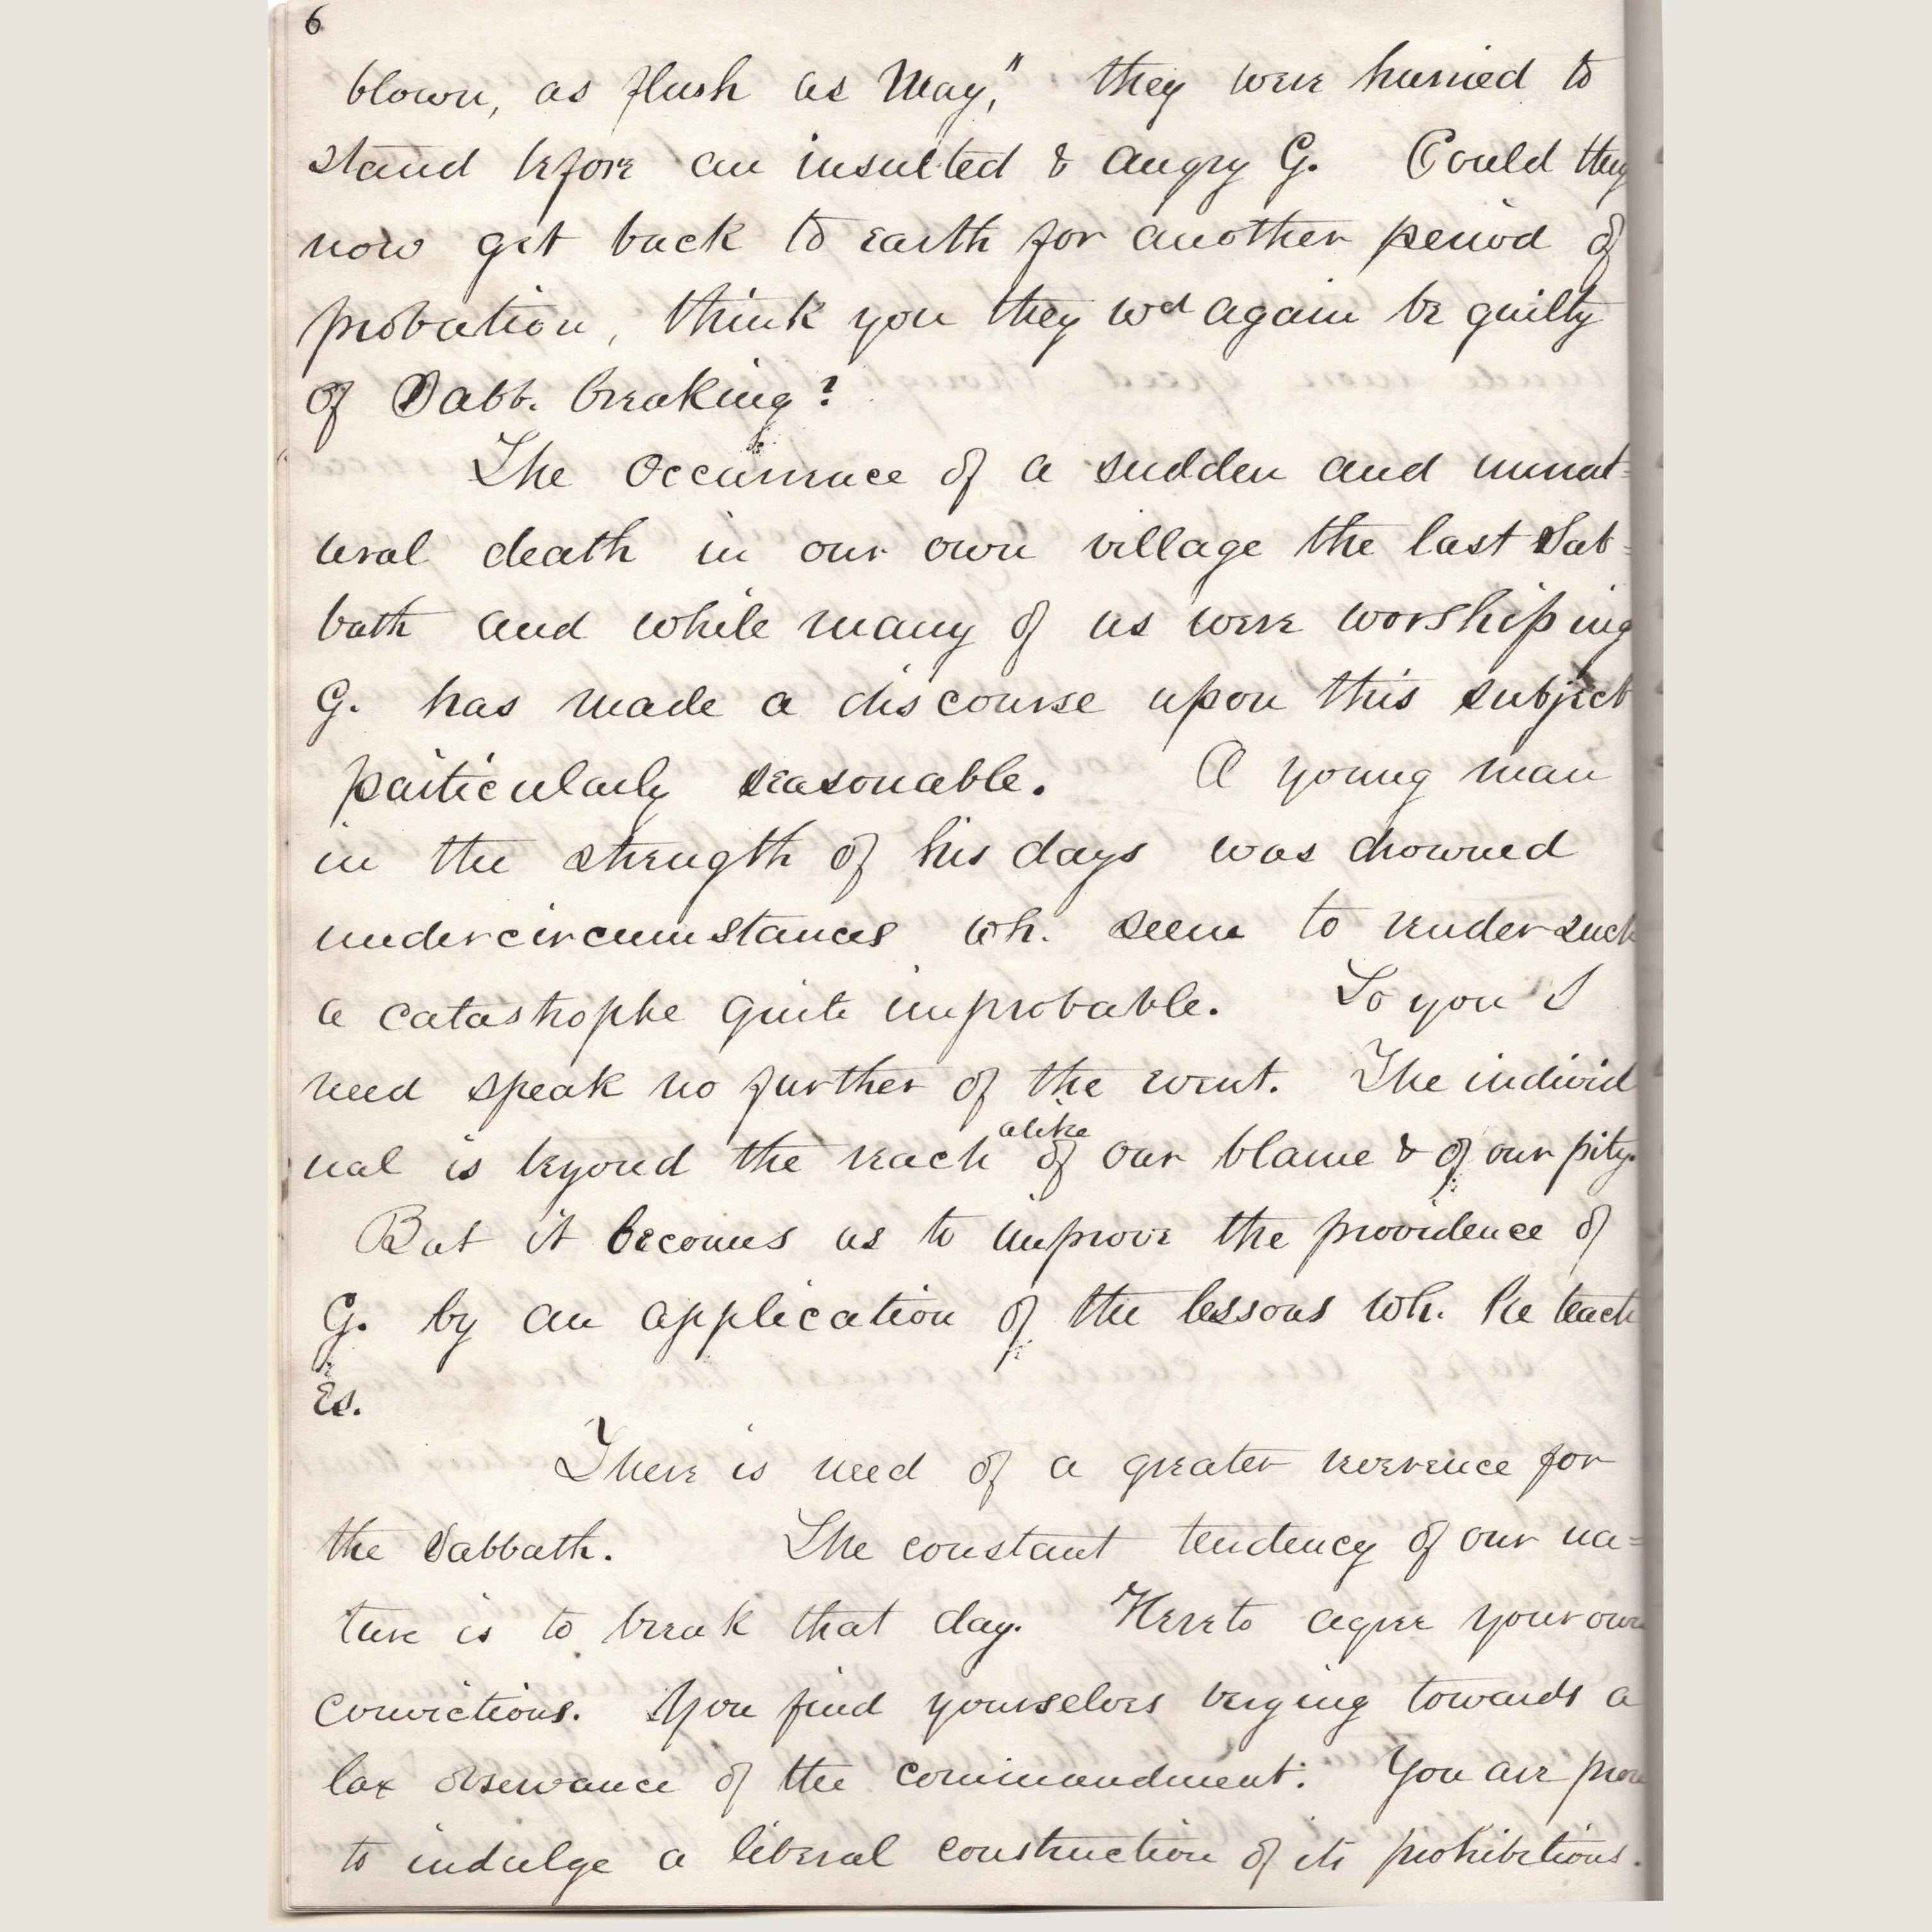 6
blown, as flush as May," they were hurried to
stand before an insulted & angry G. Could they
now get back to earth for another period of
probation, think you they wd again be guilty
of Sabb. breaking?
The occurrence of a sudden and unnat-
ural death in our own village the last Sab-
bath and while many of us were worshiping
G. has made a discourse upon this subject
particularly seasonable. A young man
in the strength of his days was drowned
under circumstances wh. seem to render such
a catastrophe quite improbable. To you I
need speak no further of the event. The individ
ual is beyond the reach alike of our blame & of our pity.
But it becomes us to improve the providence of
G. by an application of the lessons wh. he teach
es.
There is need of a greater reverence for
the Sabbath. The constant tendency of our na-
ture is to break that day. Hereto agree your own
convictions. You find yourselves verging towards a
lax observance of the commandment: You are prone
to indulge a liberal construction of its prohibitions.